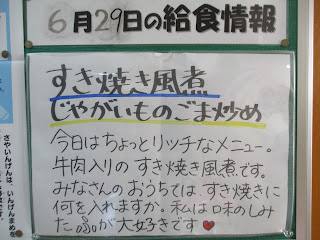 6月29日の給食情報
すき焼き風煮
じゃがいものごま炒め
今日はちょっとリッチなメニュー。
牛肉入りの すき焼き風煮です。
みなさんのおうちでは、すき焼きに
何を入れますか。私は味のしみ
たふが大好きです♥
さやいんげんは、いんげんまめを